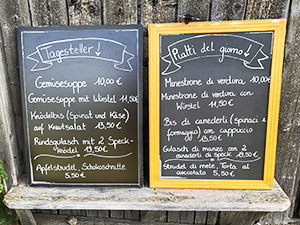 Tagesteller
Gemüsesuppe 10,00 €
Gemüsesuppe mit Würstel 11,50€
Knödelbis (Spinat und Käse)
auf Krautsalat 13,50€
Rindsgulasch mit 2 Speck-
knödel 19,50€
Apfelstrudel, Schokoschnitte
5,50 €
Piatti del giorno
Minestrone di verdura 10,00€
Minestrone di verdura con
Würstel 11,50€
Bis di canederli (spinaci e
formaggio) con cappuccio
13,50€
Gulasch di manzo con 2
canederli di speck 19,50€
Strudel di mele, Torta al
cioccolato 5,50€